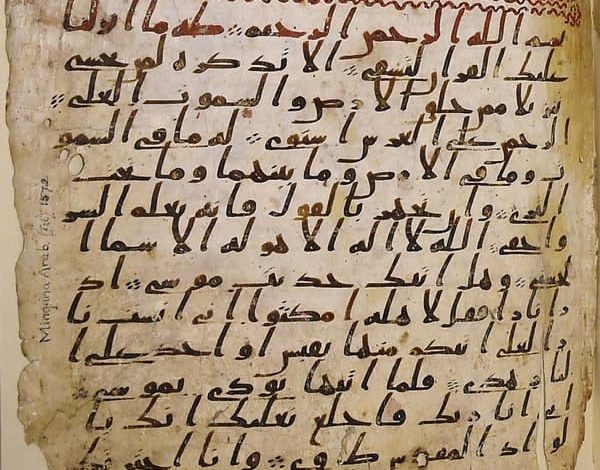 بسم الله الرحمن الرحيم طه ما انزلنا
عليك القران لتشقى الا تذكره لمن يخشى
تنزيلا ممن خلق الارض والسموت العلى
الرحمن على العرش استوى له ما في السمو
ت وما في الارض وما بينهما وما تحت
الثرى وان تجهر بالقول فانه يعلم السر
واخفى الله لا اله الا هو له الاسما ا
لحسنى وهل اتيك حديث موسى اذ
را نارا فقل لاهله امكثوا اني انست نا
را لعلي اتيكم منها بقبس او اجد على ا
لنار هدى فلما اتيها نودي يموسى
اني انا ربك فاخلع نعليك انك با
لواد المقدس طوى وانا اخترتك
Mingana Arab. 1572